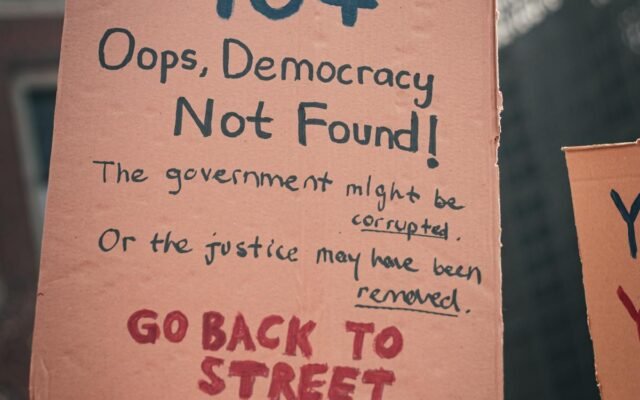 404
Oops, Democracy
Not Found!
The government might be
corrupted.
Or the justice may have been
removed.
GO BACK TO
STREET
Y
Y